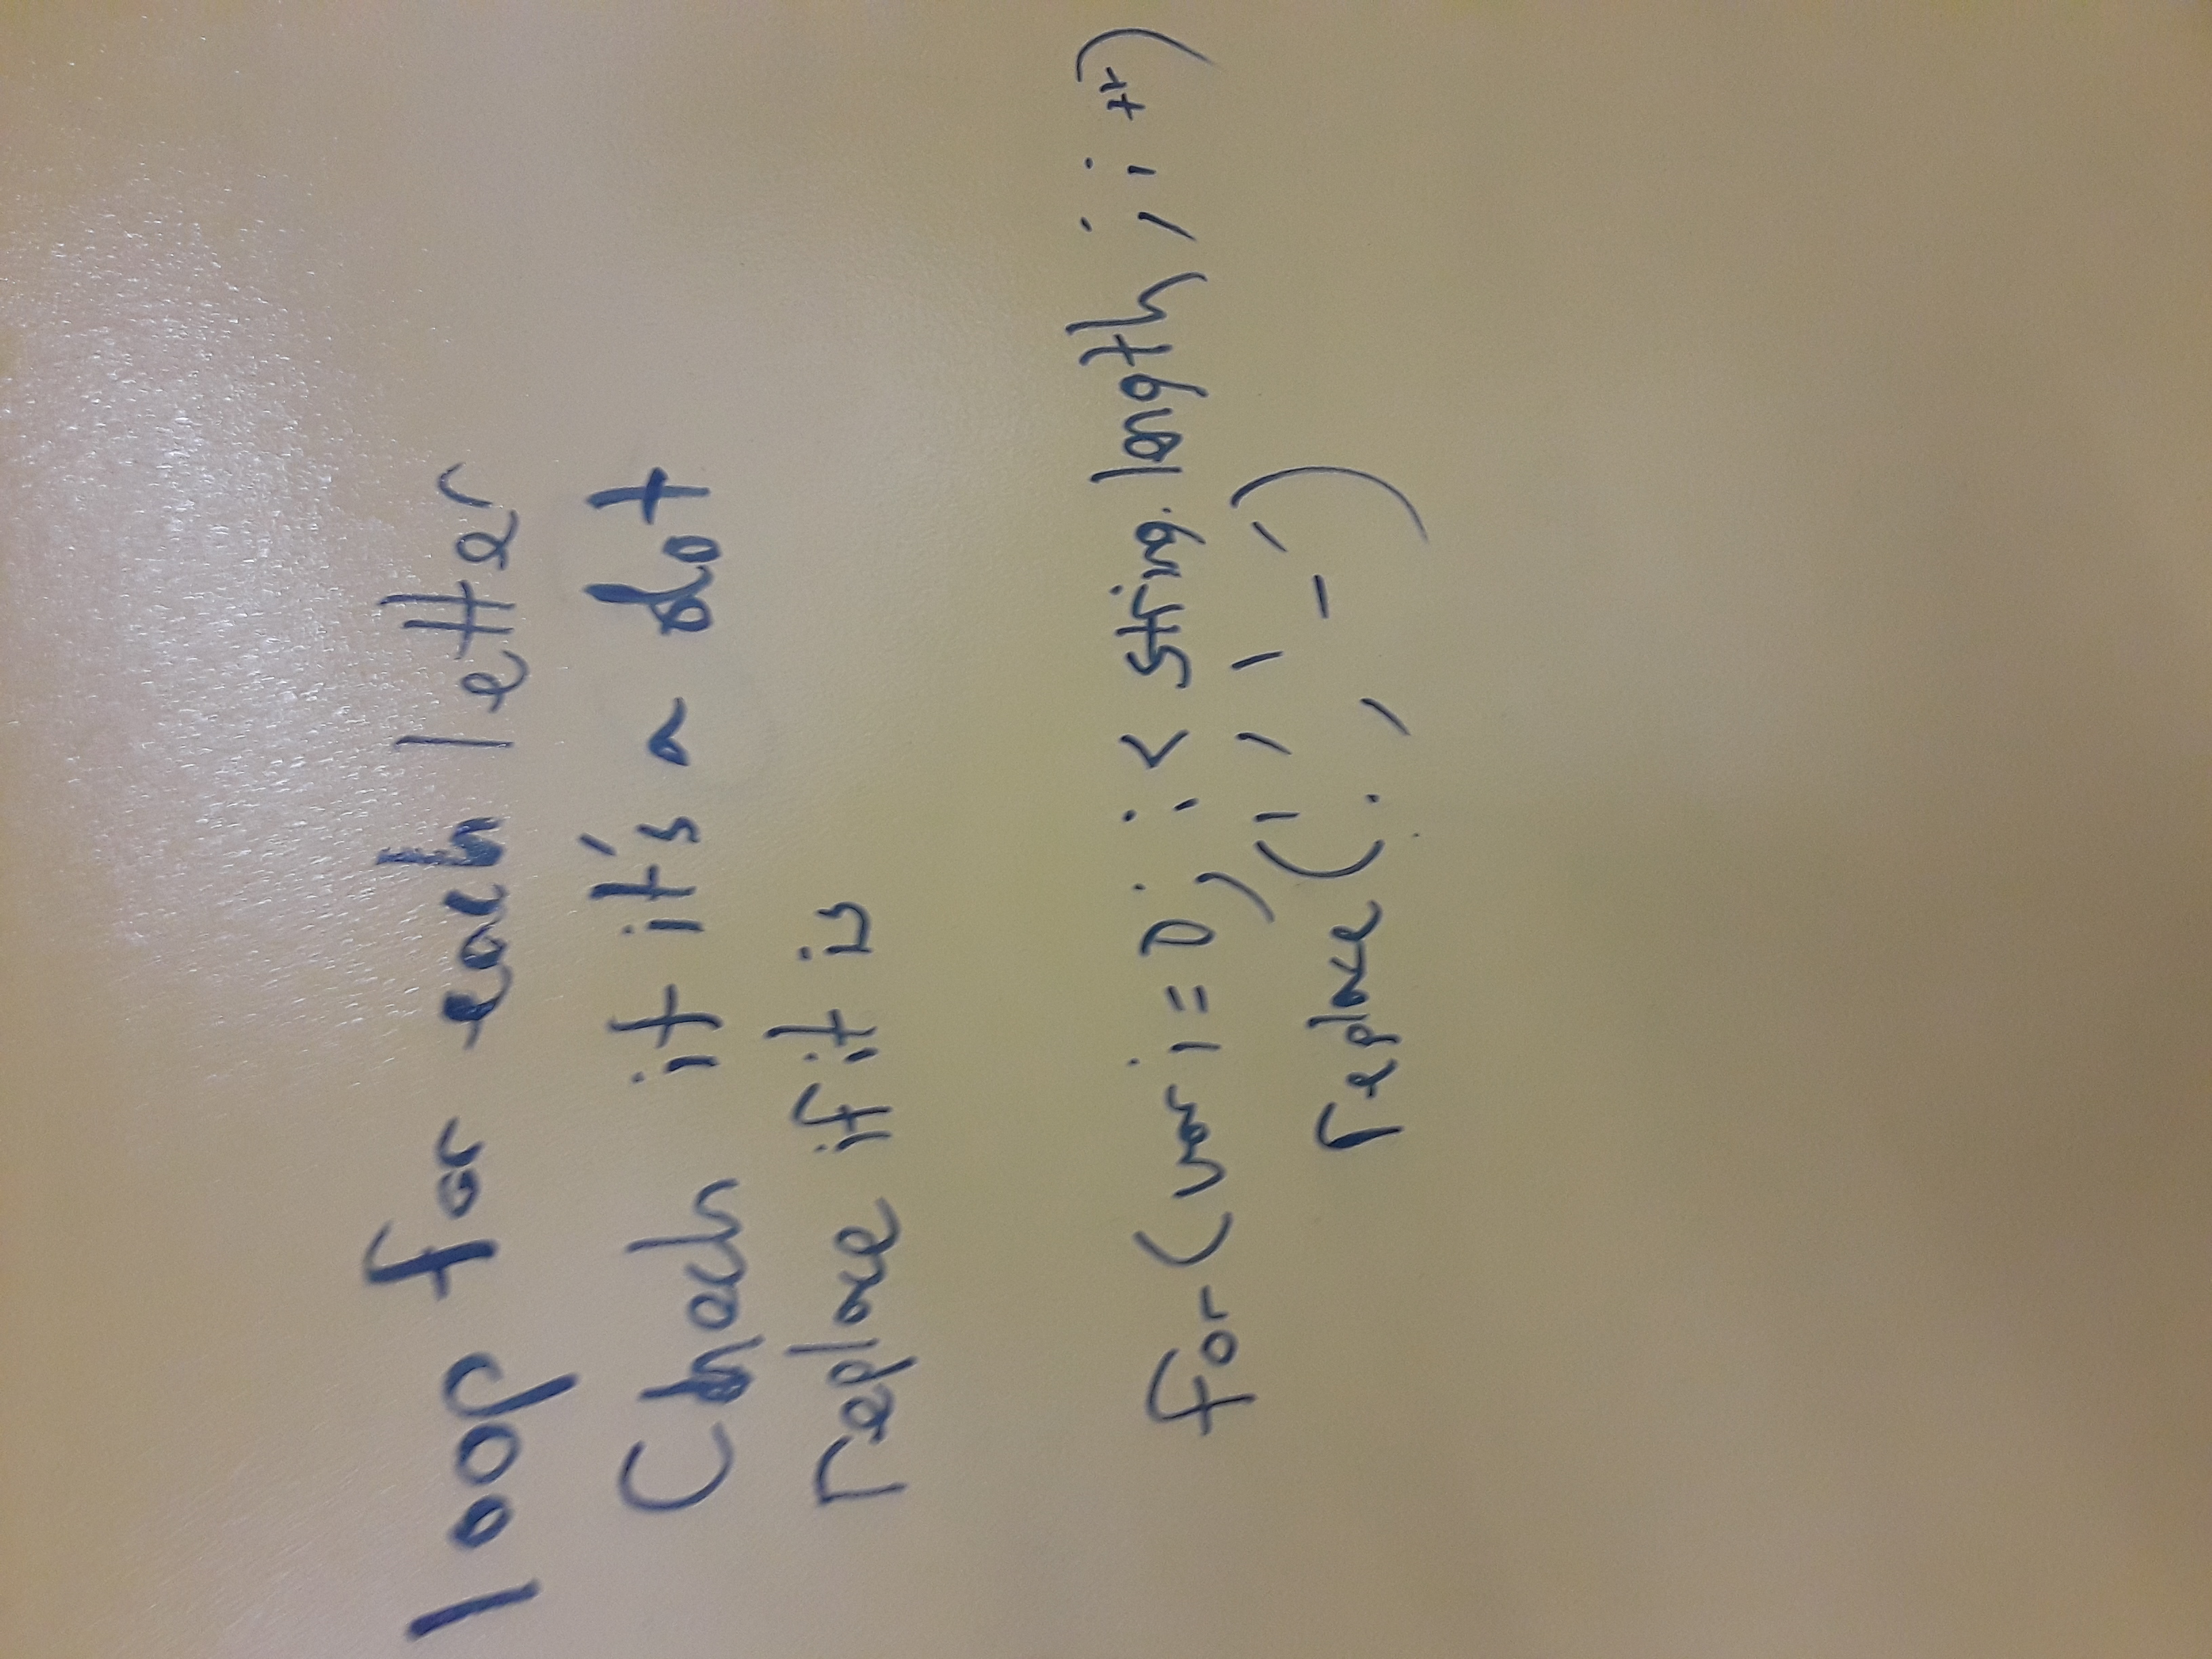 loop for each letter
Check if it's a dot
replace if it is
for (var i = 0; i < string.length; i++)
replace('.', '-')